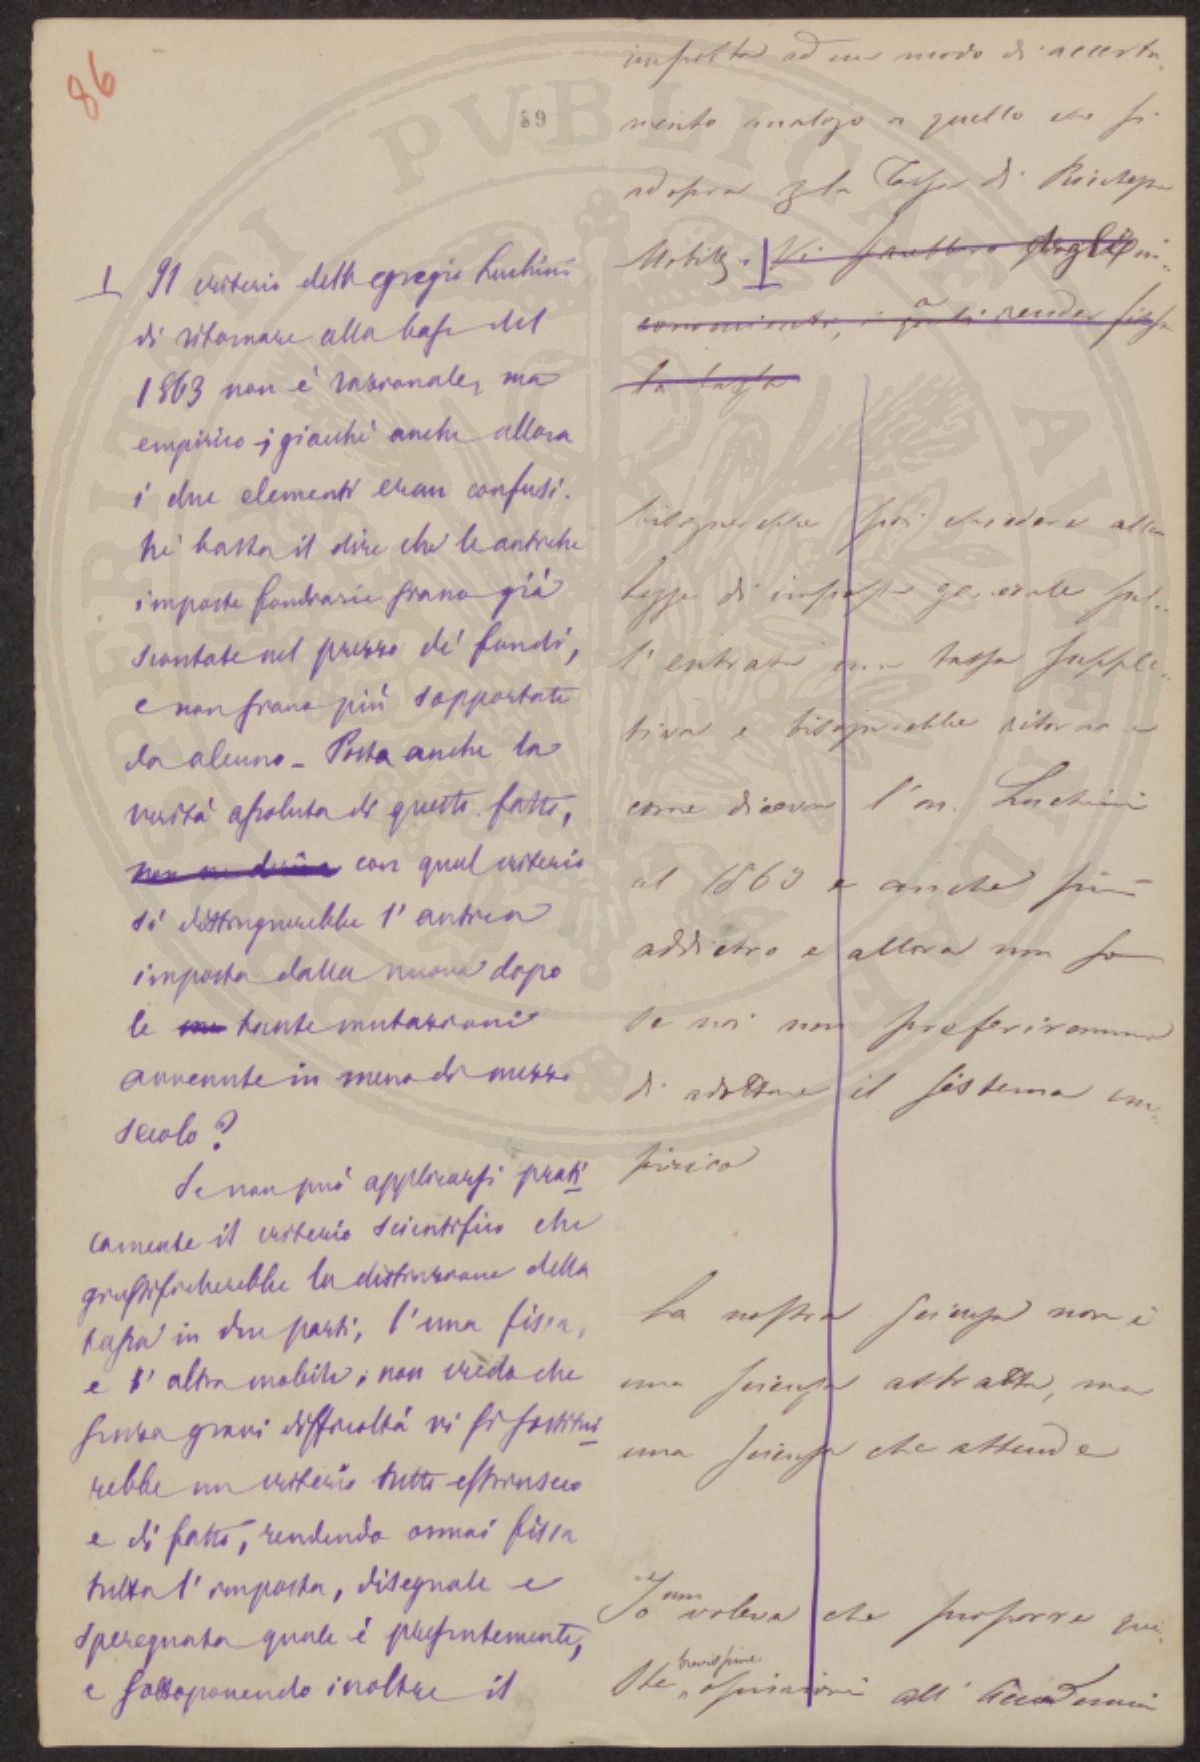 86
59
I Il criterio dell'egregio Luchini
di ritornare alla base del
1863 non è razionale, ma
empirico; giacchè anche allora
i due elementi eran confusi.
Nè basta il dire che le antiche
imposte fondiarie sieno già
scontate nel prezzo dei fondi,
e non sieno più sopportate
da alcuno - Posta anche la
verità assoluta di questo fatto,
con qual criterio
si distinguerebbe l'antica
imposta dalla nuova dopo
le tante mutazioni
avvenute in meno di mezzo
secolo?
Se non può applicarsi prati
camente il criterio scientifico che
giustificherebbe la distinzione della
tassa in due parti, l'una fissa,
e l'altra mobile, non credo che
senza gravi difficoltà vi si sostitui
rebbe un criterio tutto estrinseco
e di fatto, rendendo ormai fissa
tutta l'imposta, disegnale e
sperequata quale è presentemente,
e sottoponendo inoltre il
imposta ad un modo di accerta-
mento analogo a quello che si
adopra per la Tassa di Ricchezza
Mobile. I Vi sarebbero degli in-
convenienti, a render fissa
la tassa
bisognerebbe poi chiedere alla
legge di imposta generale sul-
l'entrata una tassa supple-
tiva e bisognerebbe ritornare
come diceva l'on. Luchini
al 1863 e anche più
addietro e allora non so
se noi non preferiremmo
di adottare il sistema em-
pirico
La nostra scienza non è
una scienza astratta, ma
una scienza che attende
Io non voleva che proporre que-
ste brevissime osservazioni all'Accademia